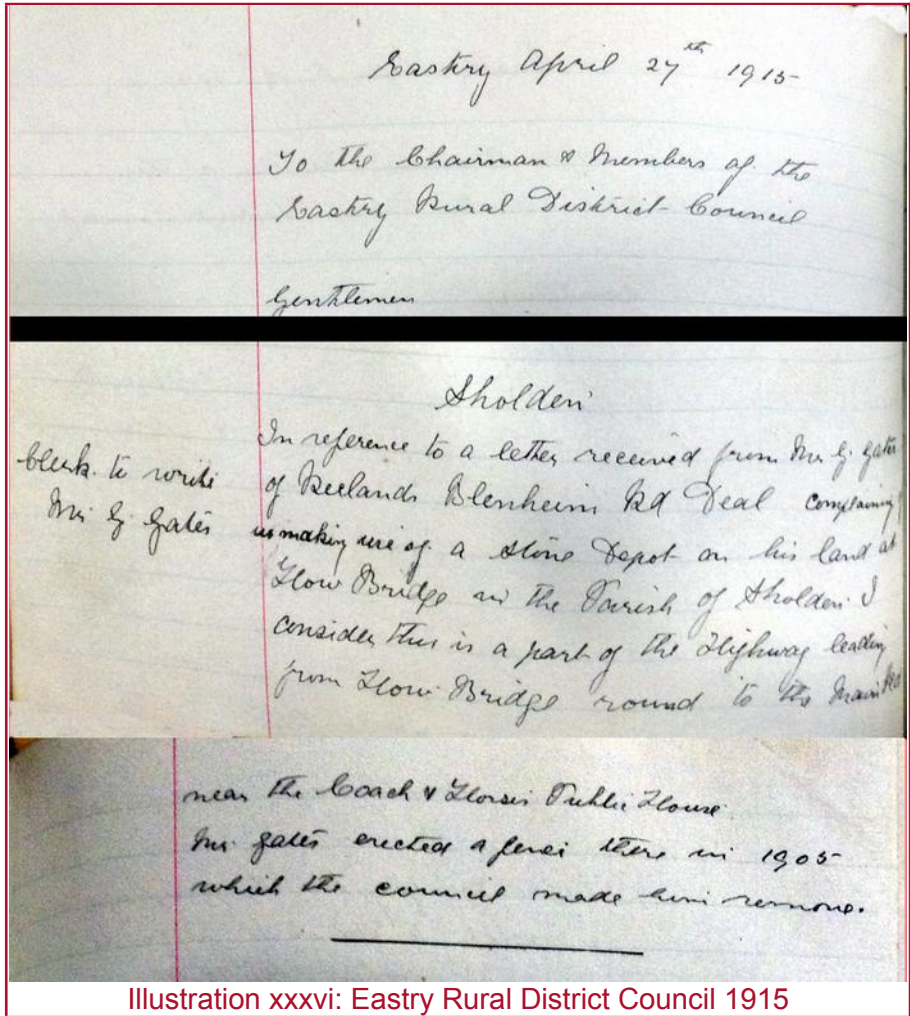 Eastry April 27th 1915
To the Chairman & Members of the
Eastry Rural District Council
Gentlemen
Sholden
Clerk to write
Mr G. Gates
In reference to a letter received from Mr G. Gates
of Keelands Blenheim Rd Deal complaining
us making use of a Stone Depot on his land at
How Bridge in the Parish of Sholden. I
consider this is a part of the Highway leading
from How Bridge round to the Main Rd
near the Coach & Horses Public House.
Mr Gates erected a fence there in 1905
which the council made him remove.
Illustration xxxvi: Eastry Rural District Council 1915